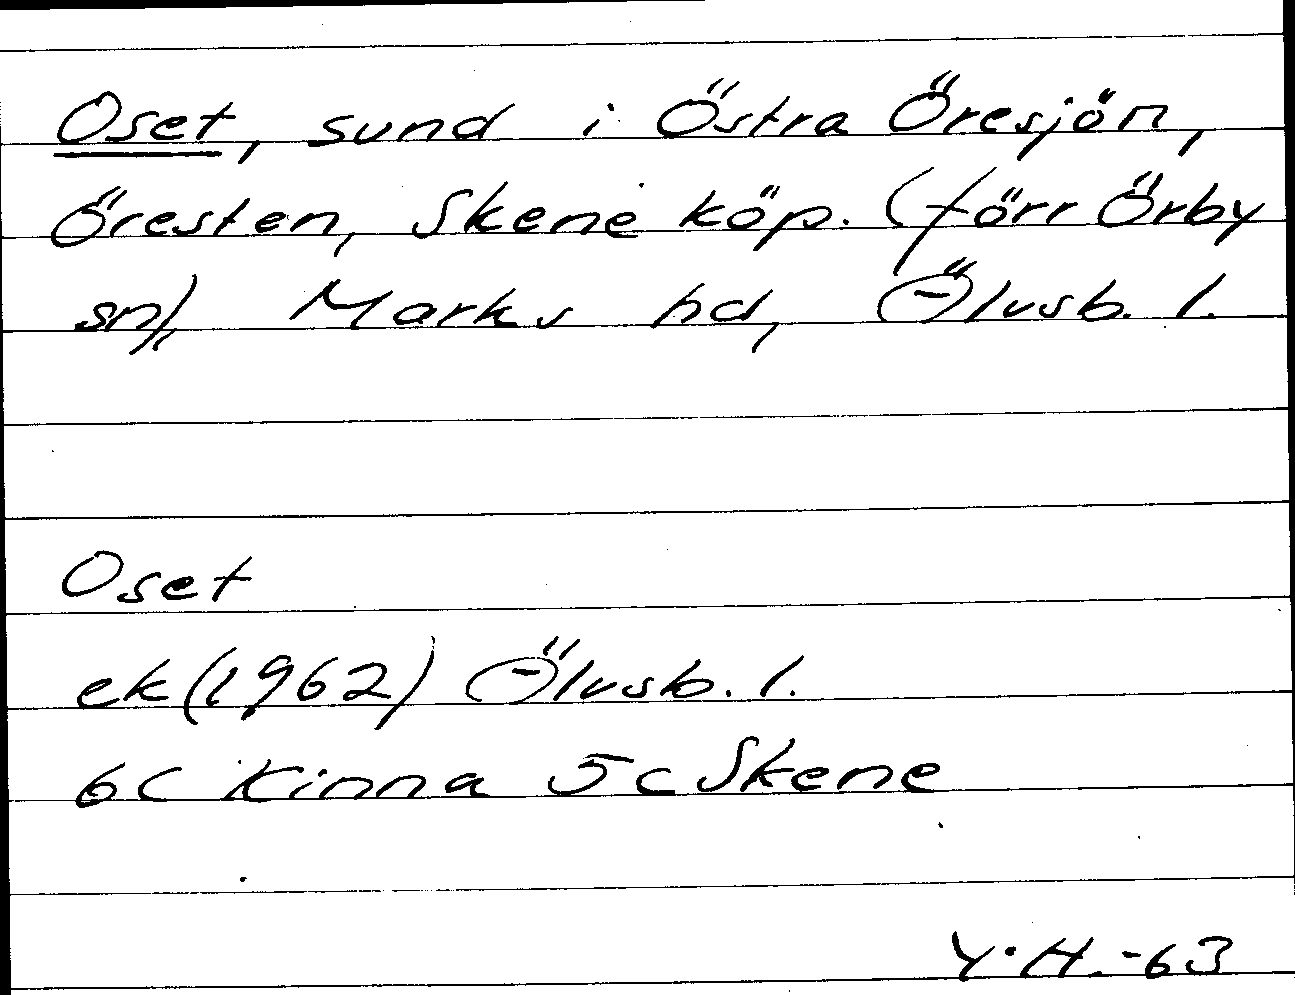 Oset, sund i Östra Öresjön,
Öresten, Skene köp. (förr Örby
sn), Marks hd, Älvsb. l.
Oset
ek (1962) Älvsb. l.
6c Kinna 5c Skene
Y.H.-63